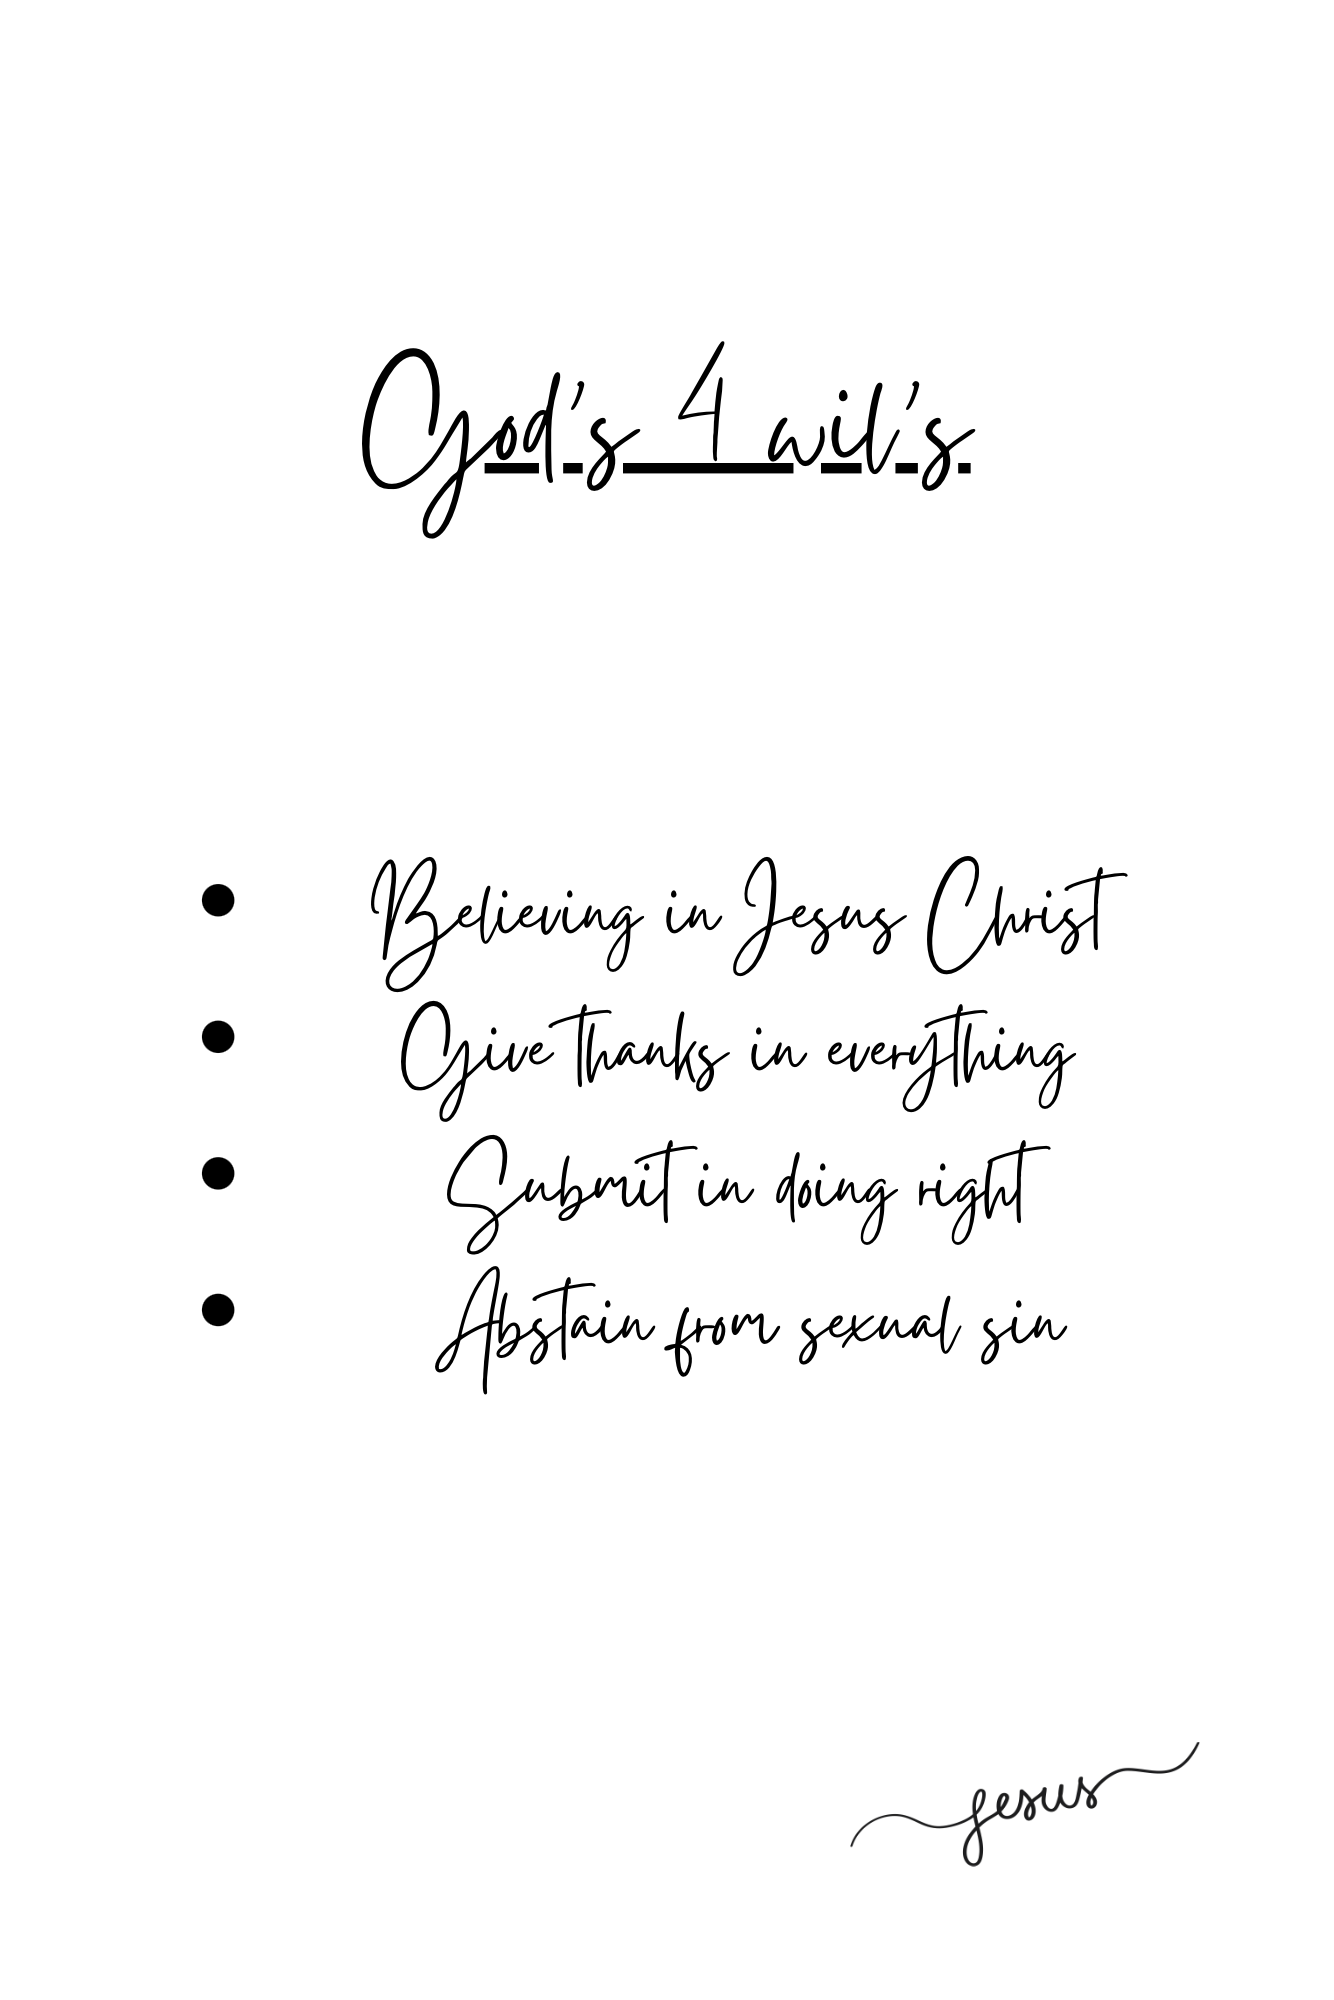 God's 4 wil's
• Believing in Jesus Christ
• Give thanks in everything
• Submit in doing right
• Abstain from sexual sin
jesus